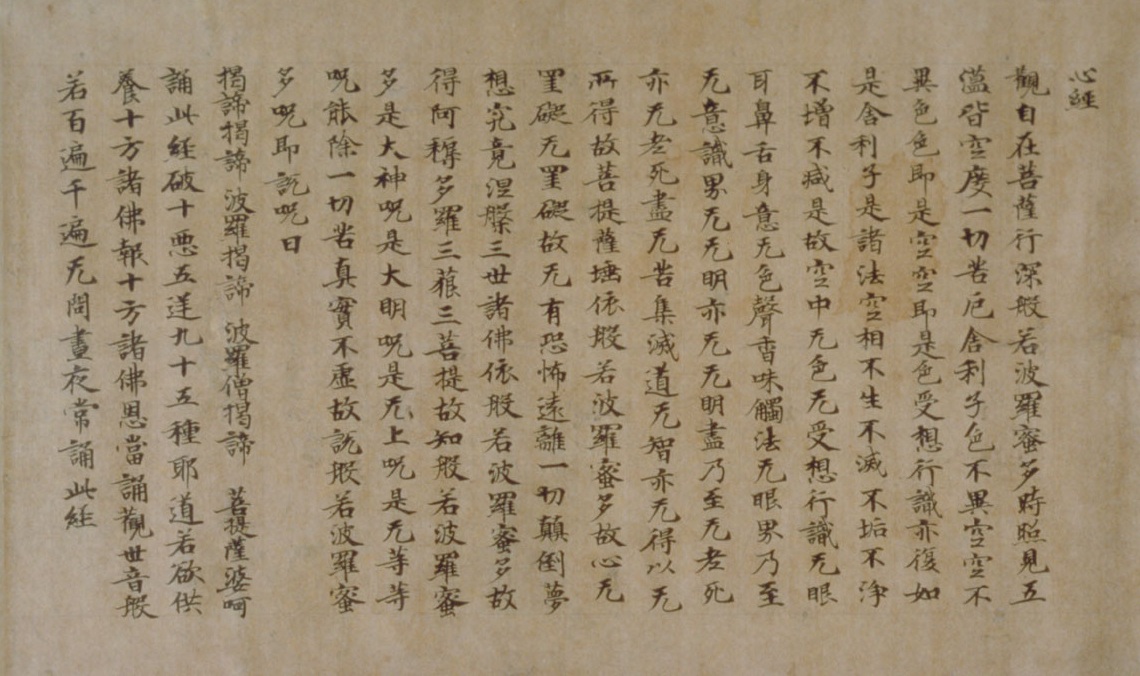 心經
觀自在菩薩行深般若波羅蜜多時照見五
蘊皆空度一切苦厄舍利子色不異空空不
異色色即是空空即是色受想行識亦復如
是舍利子是諸法空相不生不滅不垢不淨
不增不減是故空中无色无受想行識无眼
耳鼻舌身意无色聲香味觸法无眼界乃至
无意識界无无明亦无无明盡乃至无老死
亦无老死盡无苦集滅道无智亦无得以无
所得故菩提薩埵依般若波羅蜜多故心无
罣礙无罣礙故无有恐怖遠離一切顛倒夢
想究竟涅槃三世諸佛依般若波羅蜜多故
得阿耨多羅三藐三菩提故知般若波羅蜜
多是大神呪是大明呪是无上呪是无等等
呪能除一切苦真實不虛故說般若波羅蜜
多呪即說呪曰
揭諦揭諦 波羅揭諦 波羅僧揭諦 菩提薩婆呵
誦此經破十惡五逆九十五種耶道若欲供
養十方諸佛報十方諸佛恩當誦觀世音般
若百遍千遍无問晝夜常誦此經